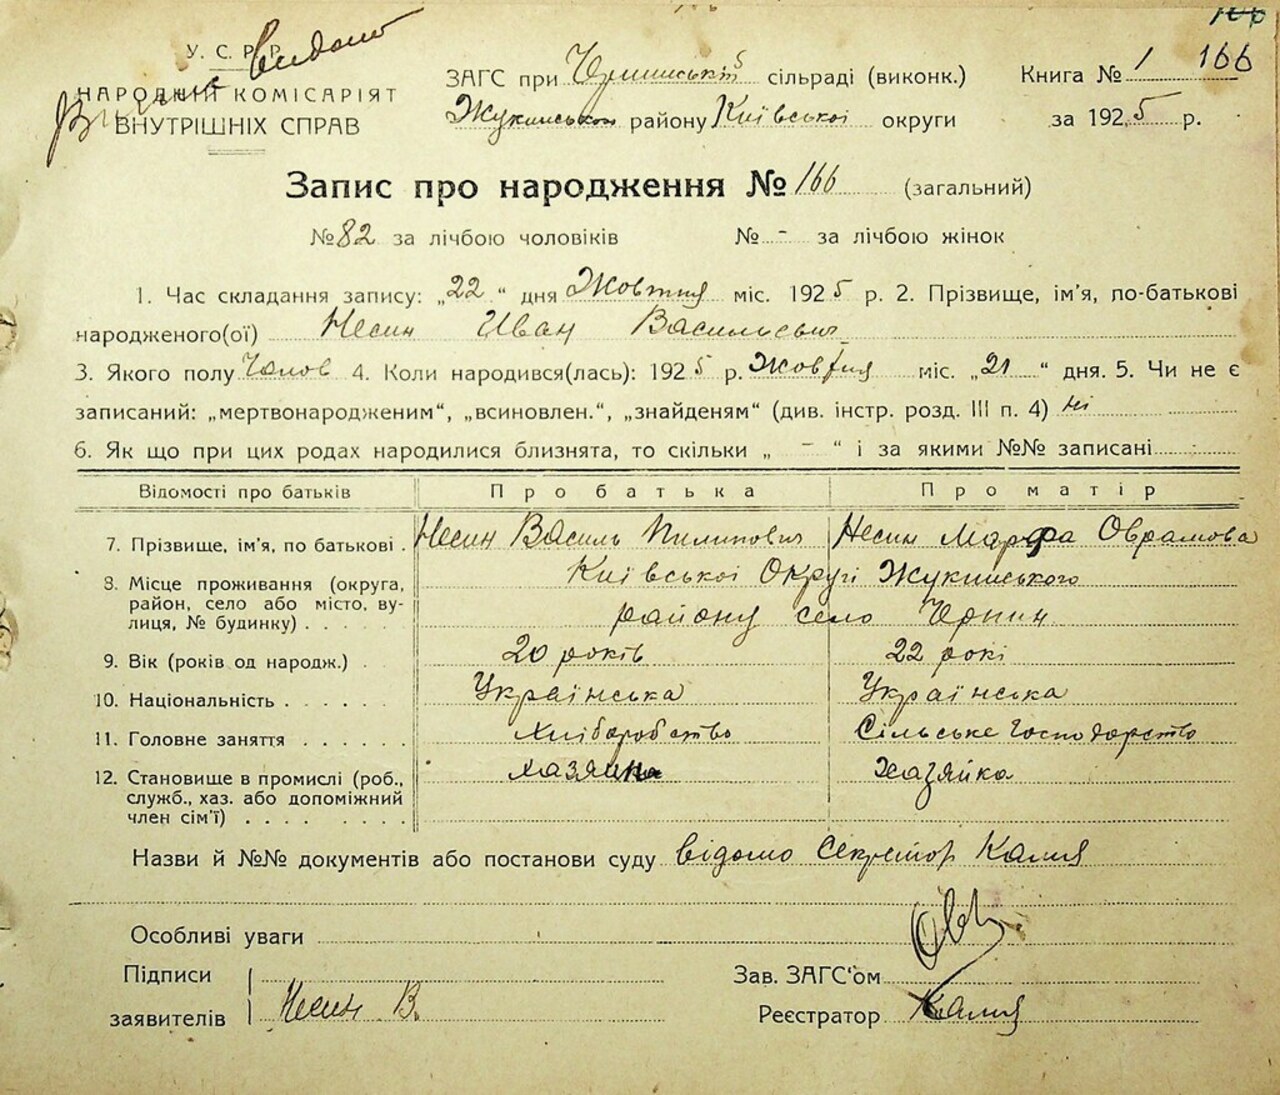 166
У. С. Р. Р.
Видано
НАРОДНІЙ КОМІСАРІЯТ
ВНУТРІШНІХ СПРАВ
ЗАГС при сільраді (виконк.)
Жукинського району Київської округи
Книга № 1 166
за 1925 р.
Запис про народження № 166 (загальний)
№ 82 за лічбою чоловіків № - за лічбою жінок
1. Час складання запису: „22“ дня Жовтня міс. 1925 р. 2. Прізвище, ім'я, по-батькові
народженого(ої) Несин Иван Васильевич
3. Якого полу Чолов 4. Коли народився(лась): 1925 р. Жовтня міс. „21“ дня. 5. Чи не є
записаний: „мертвонародженим“, „всиновлен.“, „знайденям“ (див. інстр. розд. III п. 4) ні
6. Як що при цих родах народилися близнята, то скільки „ - “ і за якими №№ записані
Відомості про батьків Про батька Про матір
7. Прізвище, ім'я, по батькові . Несин Василь Пилипович Несин Марфа Оврамова
8. Місце проживання (округа, Київської Округі Жукинського
район, село або місто, ву-
лиця, № будинку) . . району село Чернин
9. Вік (років од народж.) . 20 років 22 рокі
10. Національність . . . . . . Українська Українська
11. Головне заняття . . . . . . Хліборобство Сільське Господарство
12. Становище в промислі (роб., хазяйка
служб., хаз. або допоміжний
член сім'ї) . . . . . . . .
Назви й №№ документів або постанови суду відомо Секретар
Особливі уваги
Підписи
Зав. ЗАГС'ом
заявителів Несин В.
Реєстратор